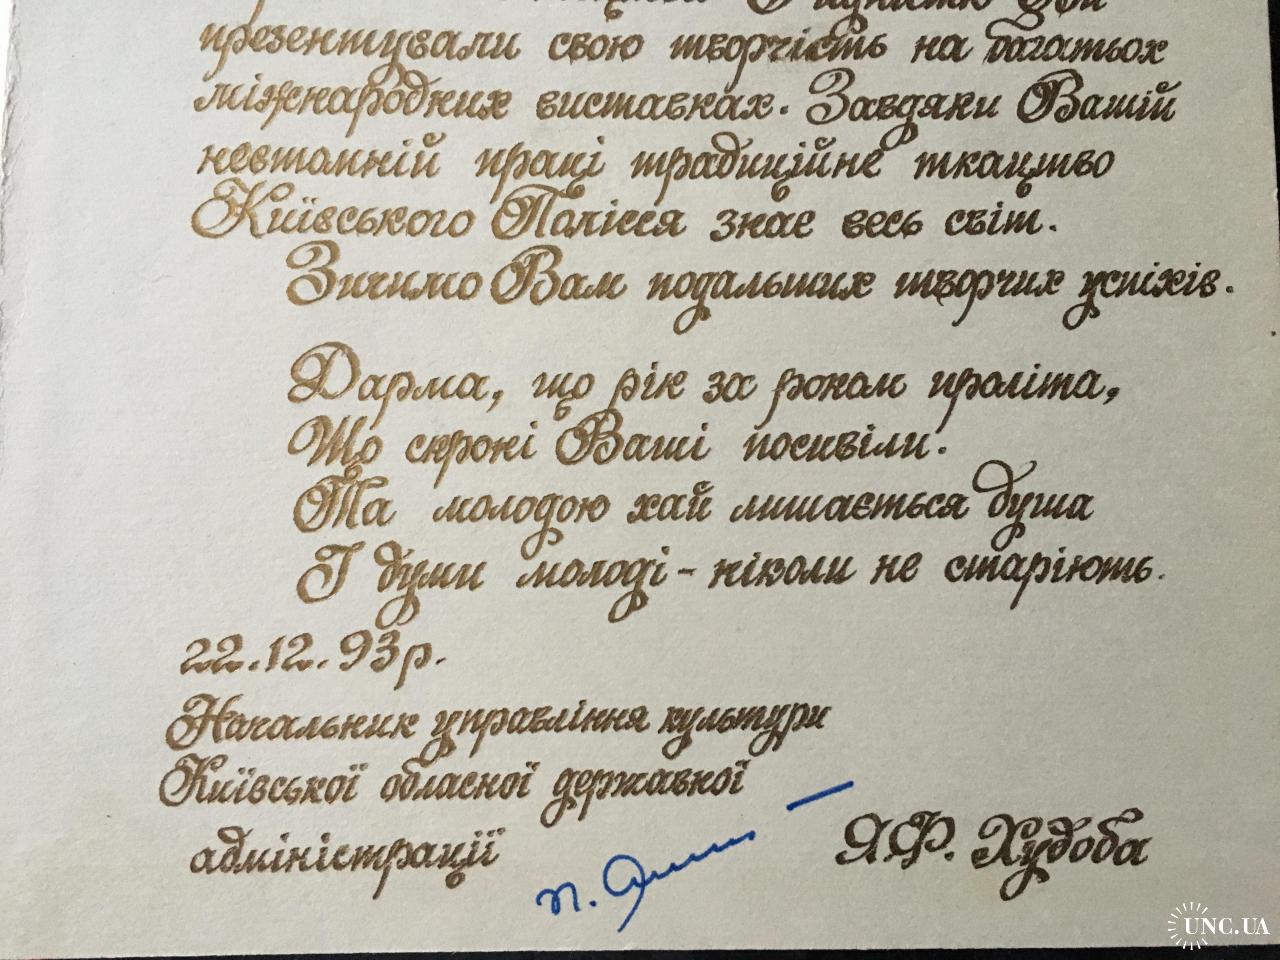 презентували свою творчість на багатьох
міжнародних виставках. Завдяки Вашій
невтомній праці традиційне ткацтво
Київського Полісся знає весь світ.
Зичимо Вам подальших творчих успіхів.
Дарма, що рік за роком проліта,
Що скроні Ваші посивіли.
Та молодою хай лишається душа
І думи молоді - ніколи не старіють.
22.12.93р.
Начальник управління культури
Київської обласної державної
адміністрації
Я.Ф. Худоба
UNC.UA